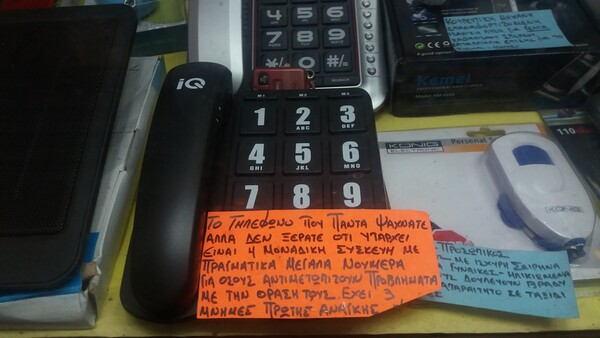 iQ
M1 M2 M3
1 2 ABC 3 DEF
4 GHI 5 JKL 6 MNO
7 8 9
4 5 6
7 8 9
* 0 #
Kemei
KÖNIG
ELECTRONIC
Personal
110
KÖNIG
ΤΟ ΤΗΛΕΦΩΝΟ ΠΟΥ ΠΑΝΤΑ ΨΑΧΝΑΤΕ
ΑΛΛΑ ΔΕΝ ΞΕΡΑΤΕ ΟΤΙ ΥΠΑΡΧΕΙ
ΕΙΝΑΙ Η ΜΟΝΑΔΙΚΗ ΣΥΣΚΕΥΗ ΜΕ
ΠΡΑΓΜΑΤΙΚΑ ΜΕΓΑΛΑ ΝΟΥΜΕΡΑ
ΓΙΑ ΟΣΟΥΣ ΑΝΤΙΜΕΤΩΠΙΖΟΥΝ ΠΡΟΒΛΗΜΑΤΑ
ΜΕ ΤΗΝ ΟΡΑΣΗ ΤΟΥΣ ΕΧΕΙ 3
ΜΝΗΜΕΣ ΠΡΩΤΗΣ ΑΝΑΓΚΗΣ
ΠΡΟΣΩΠΙΚΟΣ
ΜΕ ΙΣΧΥΡΗ ΣΕΙΡΗΝΑ
ΓΥΝΑΙΚΕΣ - ΗΛΙΚΙΩΜΕΝΑ
ΔΟΥΛΕΥΟΥΝ ΒΡΑΔΥ
ΑΠΑΡΑΙΤΗΤΟ ΣΕ ΤΑΞΙΔΙΑ